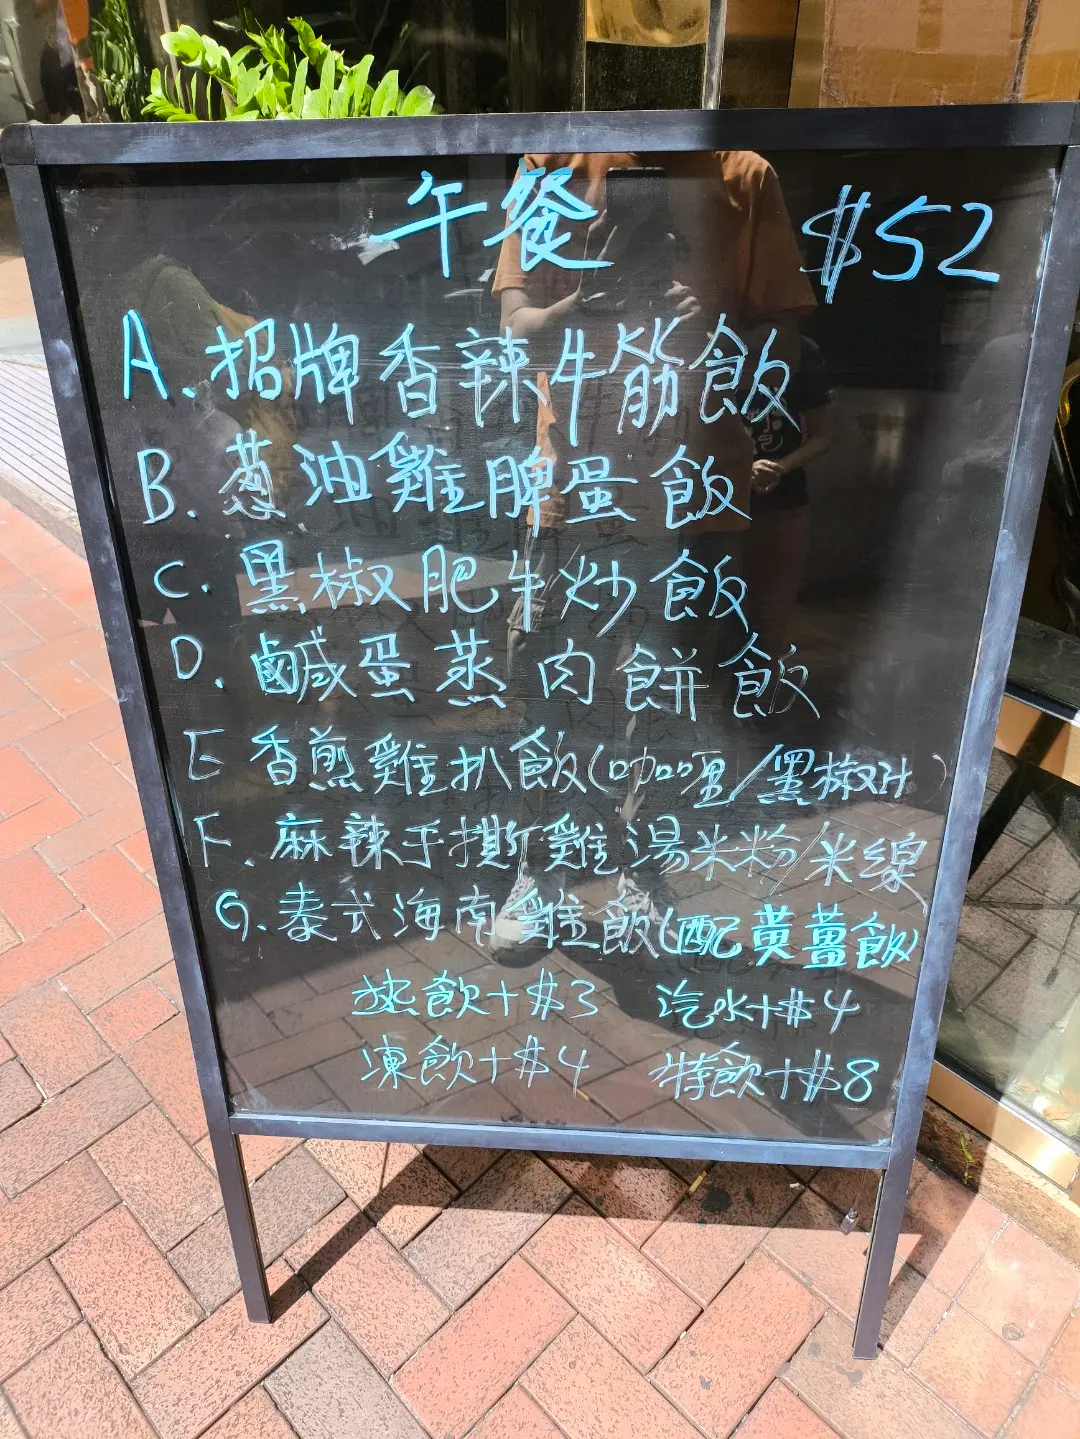 午餐 $52
A. 招牌香辣牛筋飯
B. 葱油雞脾蛋飯
C. 黑椒肥牛炒飯
D. 鹹蛋蒸肉餅飯
E 香煎雞扒飯(咖喱/黑椒汁)
F. 麻辣手撕雞湯米粉/米線
G. 泰式海南雞飯(配黄薑飯)
热飲+$3 汽水+$4
凍飲+$4 特飲+$8